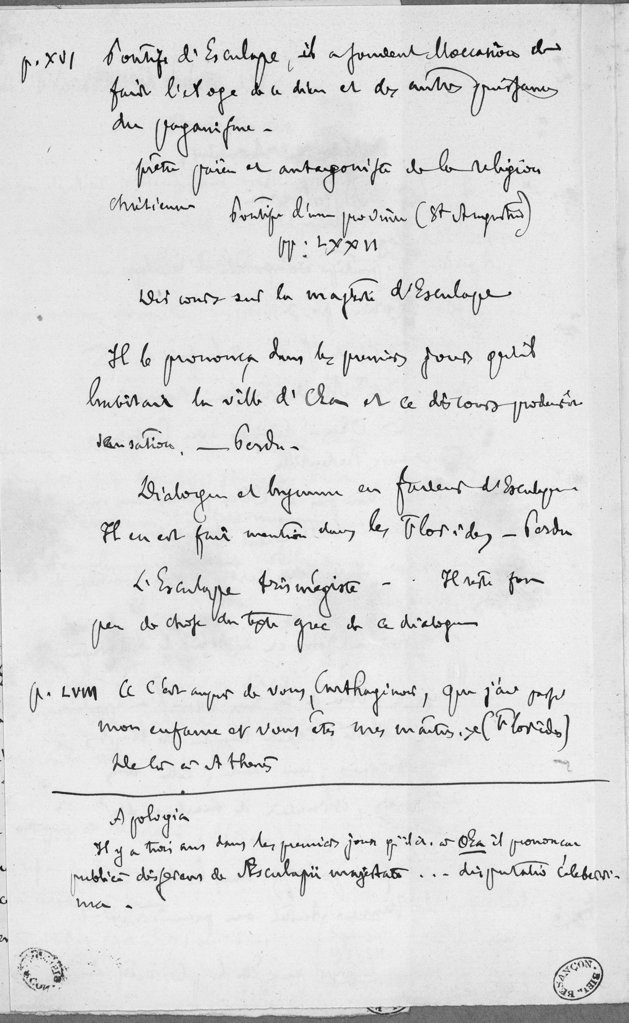 p. XVI Pontife d'Esculape, il a souvent l'occasion de
faire l'éloge de ce dieu et des autres puissances
du paganisme -
prêtre païen et antagoniste de la religion
chrétienne Pontife d'une province (St Augustin)
pp: LXXVI
Discours sur la majesté d'Esculape
Il le prononça dans les premiers jours qu'il
habitait la ville d'Œa et ce discours produisit
sensation. — Perdu -
Dialogue et hymne en faveur d'Esculape
Il en est fait mention dans les Florides - Perdu
L'Esculape trismégiste - . Il reste fort
peu de chose du texte grec de ce dialogue
p. LVIII « C'est auprès de vous, Carthaginois, que j'ai passé
mon enfance et vous êtes mes maîtres. » (Florides)
De là à Athènes
Apologia
Il y a trois ans dans les premiers jours à Œa il prononça
publice disserens de Æsculapii majestate ... disputatio celeberri-
ma -
BESANÇON BIBL.